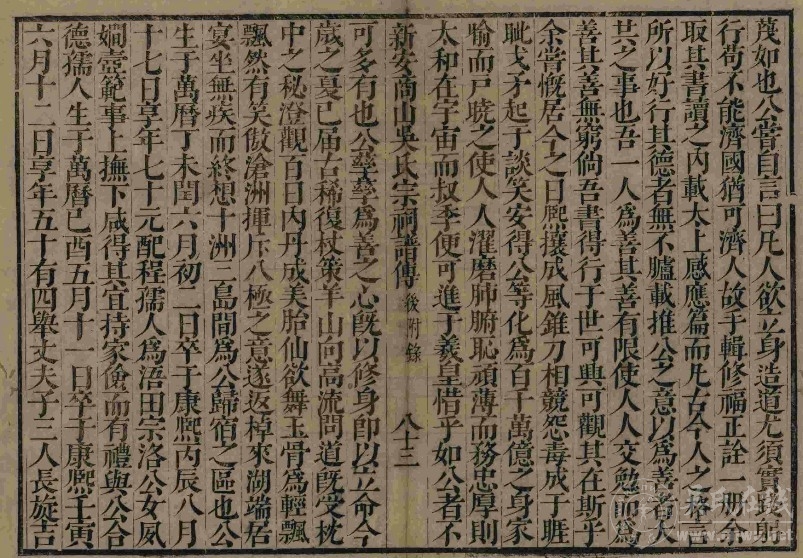 茂如也公嘗自言曰凡人欲立身造道尤須實踐躬
行苟不能濟國猶可濟人故手輯修福正詮一冊余
取其書讀之内載太上感應篇而凡古今人之格言
所以好行其德者無不臚載推公之意以為善者大
共之事也吾一人為善其善有限使人人交勉而為
善其善無窮倘吾書得行于世可興可觀其在斯乎
余嘗慨居今之日熙攘成風錐刀相競怨毒成于睚
眦戈矛起于談笑安得公等化為百千萬億之身家
喻而戸曉之使人人濯磨肺腑恥頑薄而務忠厚則
太和在宇宙而叔季便可進于羲皇惜乎如公者不
新安商山吳氏宗祠譜傳 後附錄 八十三
可多有也公孳孳為善之心既以修身即以立命今
歲之夏已届古稀復杖策羊山向高流問道既受枕
中之秘澄觀百日内丹成美胎仙欲舞玉骨為輕飄
飄然有笑傲滄洲揮斥八極之意遂返棹來湖端居
宴坐無疾而終想十洲三島間為公歸宿之區也公
生于萬曆丁未閏六月初二日卒于康熙丙辰八月
十七日享年七十元配程孺人為浯田宗洛公女夙
嫺壼範事上撫下咸得其宜持家儉而有禮與公合
德孺人生于萬曆己酉五月十一日卒于康熙壬寅
六月十二日享年五十有四舉丈夫子三人長旋吉